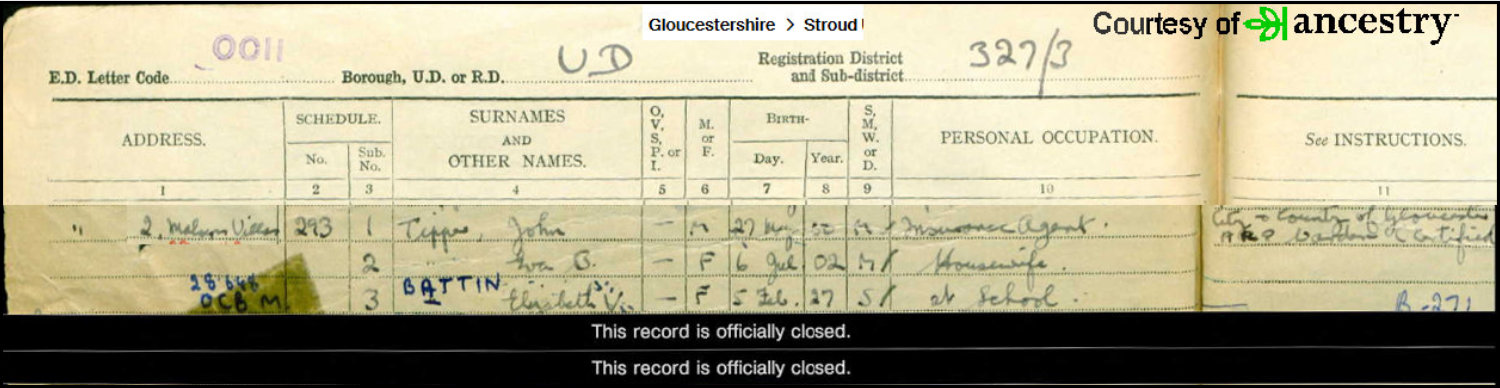 Gloucestershire > Stroud
Courtesy of ancestry
0011
UD
327/3
E.D. Letter Code
Borough, U.D. or R.D.
Registration District and Sub-district
ADDRESS.
SCHEDULE.
No.
Sub. No.
SURNAMES AND OTHER NAMES.
O, V, S, P. or I.
M. or F.
BIRTH-
Day.
Year.
S, M, W. or D.
PERSONAL OCCUPATION.
See INSTRUCTIONS.
1 2 3 4 5 6 7 8 9 10 11
" 2, Villas 293 1 John — M 27 M Insurance Agent. City & County of Gloucester ARP Warden Certified
2 " Eva — F 6 Jul 02 M Housewife.
28.648 OCB M. 3 BATTIN Elizabeth — F 5 Feb. 27 S at School.
This record is officially closed.
This record is officially closed.